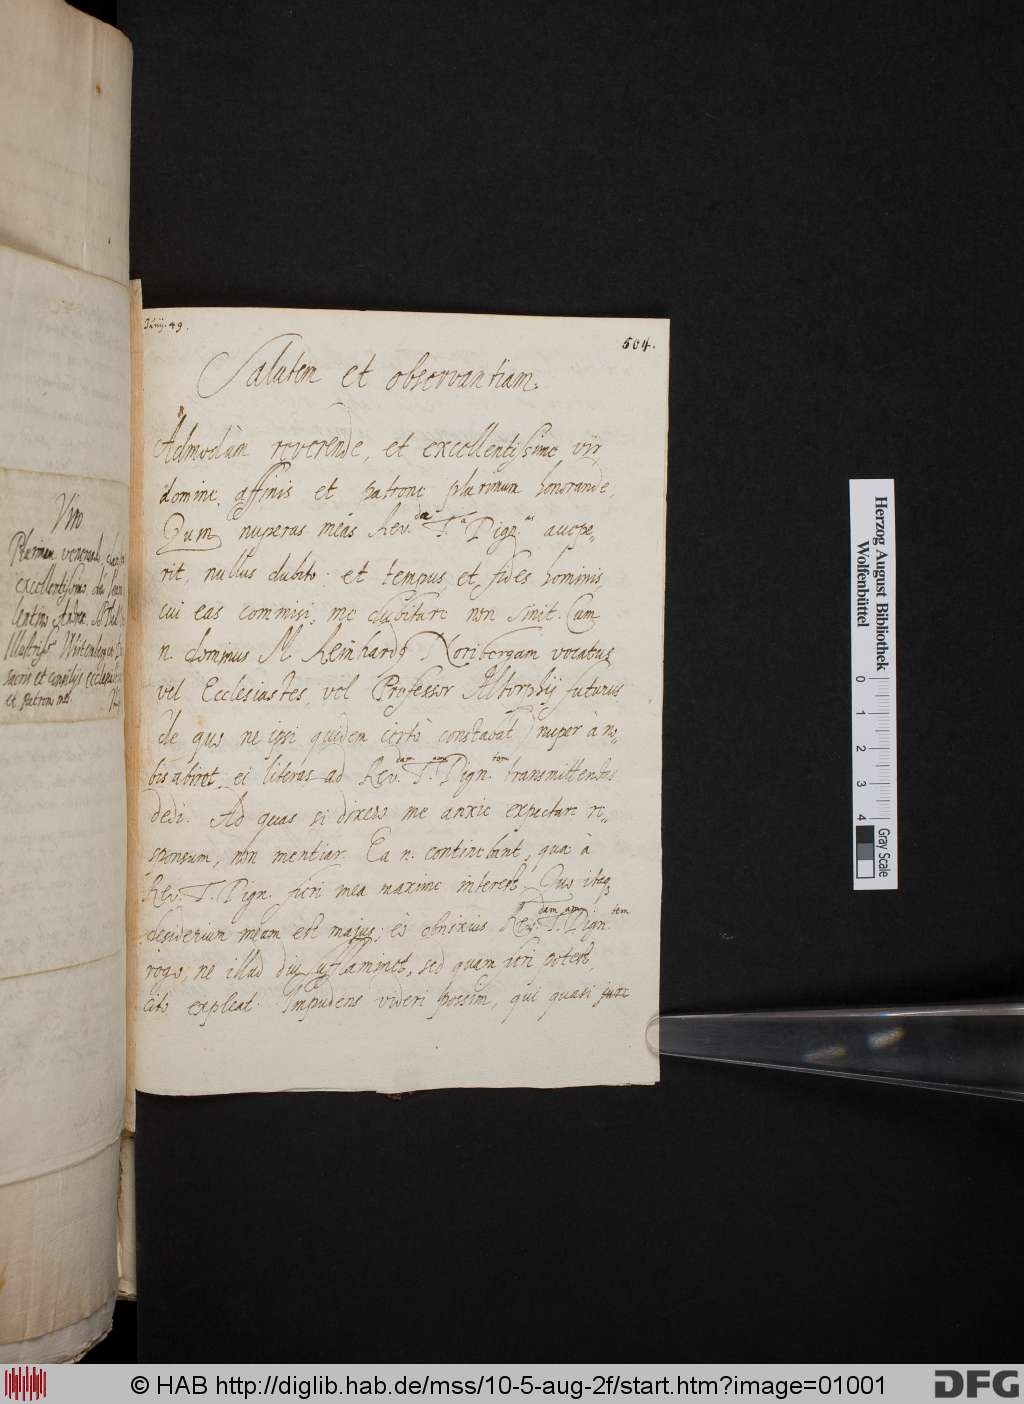 Junij. 49.
504.
Salutem et observantiam.
Admodùm reverende, et excellentissime vir,
domine, affinis et patrone plurimum honorande,
Quin nuperas meas Rev.da T.a Dign.as accepe-
rit, nullus dubito: et tempus et fides hominis,
cui eas commisi, me dubitare non sinit. Cum
n. dominus M. Reinhardq Noribergam vocatus
vel Ecclesiastes, vel Professor Altorphij futurus,
de quo ne ipsi quidem certò constabat, nuper à no-
bis abiret, ei literas ad Rev.dam T.am Dign.tem transmittendas
dedi. Ad quas si dixero me anxie expectare re-
sponsum, non mentiar. Ea n. continebant, quæ à
Rev. T. Dign. fieri mea maxime interest. Quo itaq
desiderium meum est majus; eò obnixius Rev.dam T.am Dign.tem
rogo, ne illud diu sufflaminet, sed quam fieri potest,
cito expleat. Impudens videri possim, qui quasi jure
Viro
Plurimum
excellentissimo
Illustriss.
et patrono meo.
Herzog August Bibliothek
Wolfenbüttel
0 1 2 3 4
Gray Scale
© HAB http://diglib.hab.de/mss/10-5-aug-2f/start.htm?image=01001
DFG